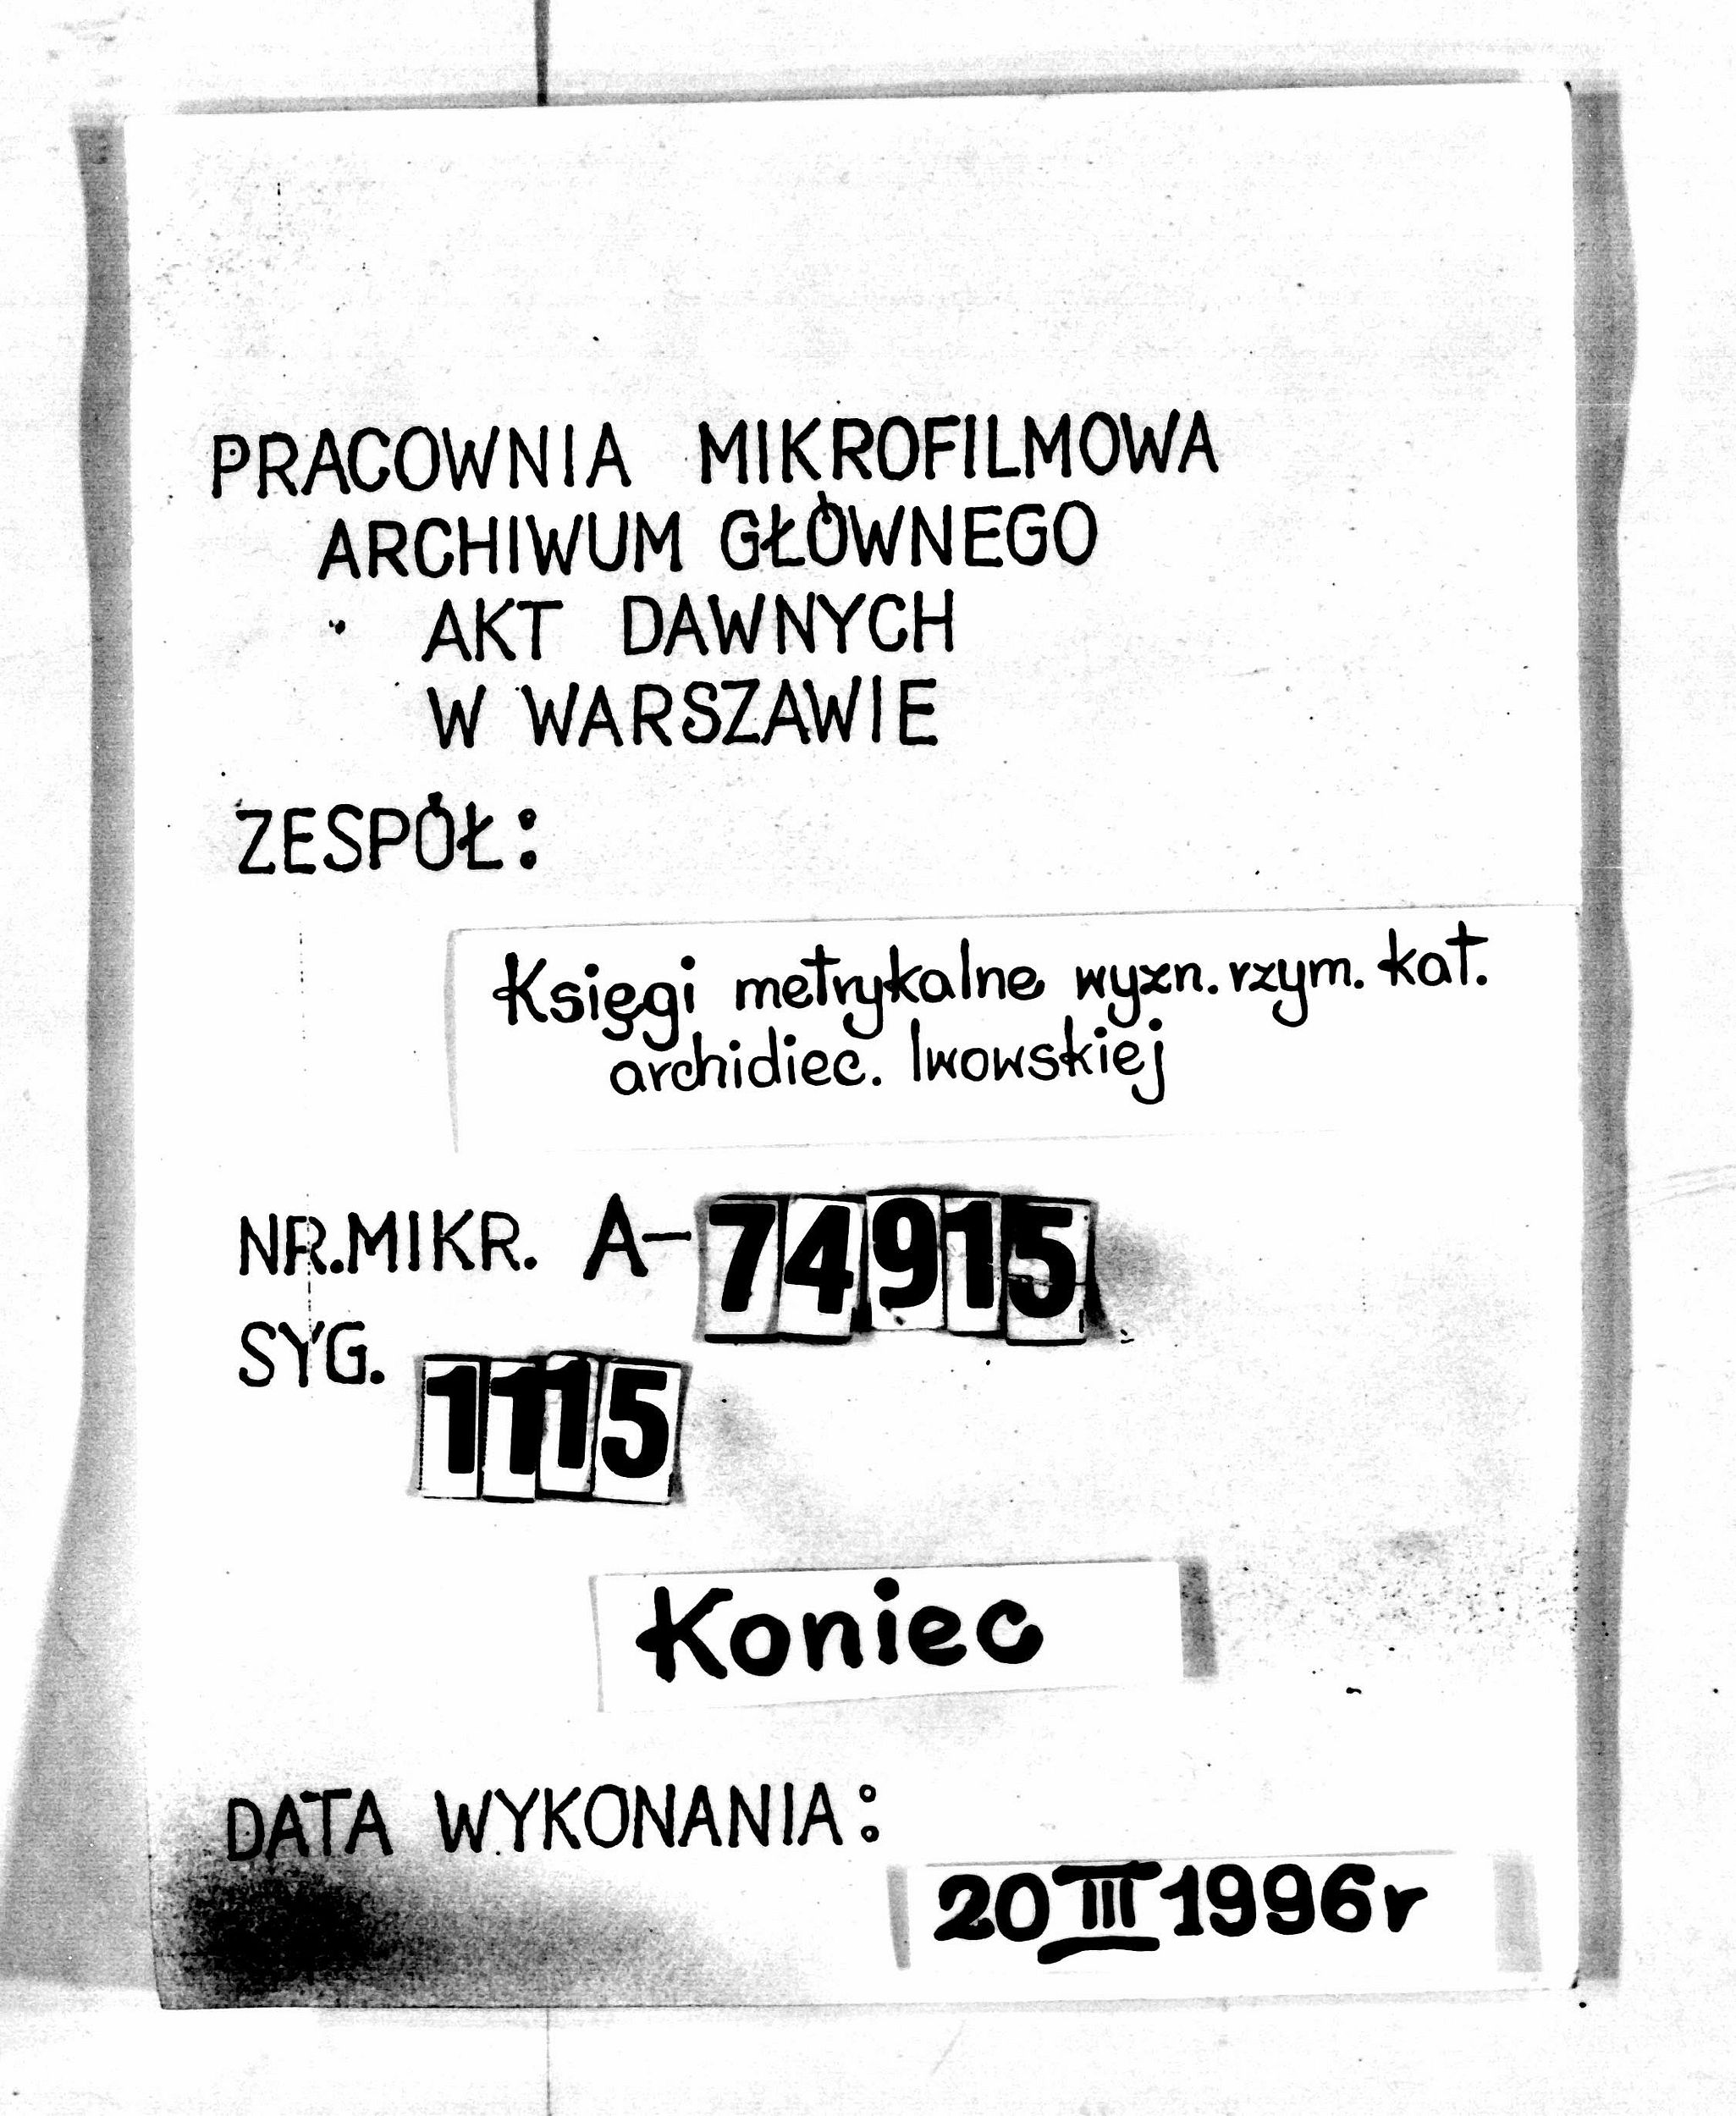 PRACOWNIA MIKROFILMOWA
ARCHIWUM GŁÓWNEGO
AKT DAWNYCH
W WARSZAWIE
ZESPÓŁ:
Księgi metrykalne wyzn. rzym. kat.
archidiec. lwowskiej
NR. MIKR. A-74915
SYG. 1115
Koniec
DATA WYKONANIA:
20 III 1996r